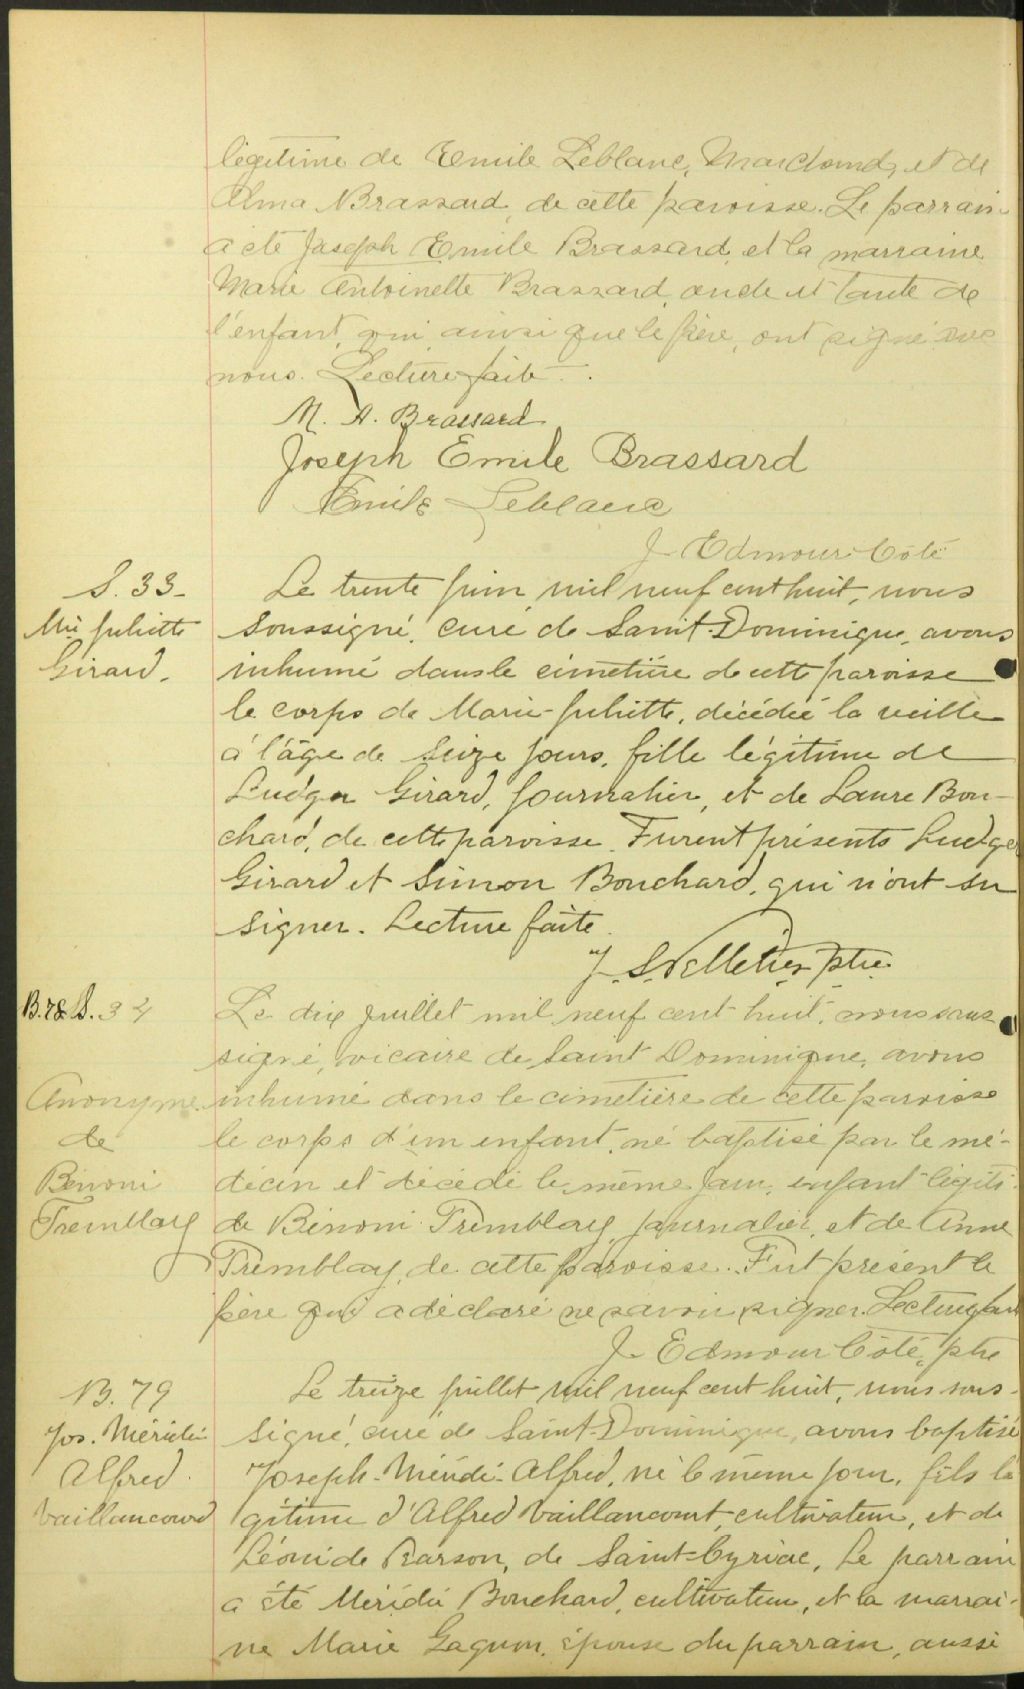 légitime de Emile Leblanc, Marchand, et de
Alma Brassard, de cette paroisse. Le parrain
a été Joseph Emile Brassard, et la marraine
Marie Antoinette Brassard, oncle et tante de
l'enfant, qui, ainsi que le père, ont signé avec
nous. Lecture faite.
M. A. Brassard
Joseph Emile Brassard
Emile Leblanc
J. Edmour Côté
S. 33-
Mie Juliette
Girard.
Le trente juin, mil neuf cent huit, nous
soussigné, curé de Saint-Dominique, avons
inhumé dans le cimetière de cette paroisse
le corps de Marie-Juliette, décédée la veille
à l'âge de seize jours, fille légitime de
Ludger Girard, journalier, et de Laure Bou-
chard, de cette paroisse. Furent présents Ludger
Girard et Simon Bouchard, qui n'ont su
signer. Lecture faite.
J. S. Pelletier, ptre.
B.78 S. 34
Anonyme
de
Bénoni
Tremblay
Le dix juillet mil neuf cent huit, nous sous
signé, vicaire de Saint Dominique, avons
inhumé dans le cimetière de cette paroisse
le corps d'un enfant, né baptisé par le mé-
decin et décédé le même jour, enfant légiti-
de Bénoni Tremblay, journalier, et de Anne
Tremblay, de cette paroisse. Fut présent le
père qui a déclaré ne savoir signer. Lecture faite
J. Edmour Côté, ptre
B. 79
Jos. Méridé
Alfred
Vaillancourt
Le treize juillet mil neuf cent huit, nous sous-
signé, curé de Saint-Dominique, avons baptisé
Joseph-Méridé-Alfred, né le même jour, fils lé
gitime d'Alfred Vaillancourt, cultivateur, et de
Léonide Pearson, de Saint-Cyriac. Le parrain
a été Méridé Bouchard, cultivateur, et la marrai-
ne Marie Gagnon, épouse du parrain, aussi